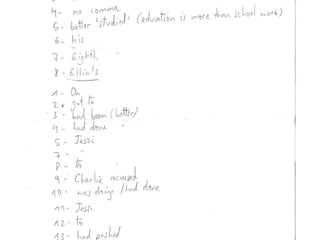 4- no comma
5- better 'studied' (education is more than school work)
6- his
7- Eighth
8- Ellin's
1- On
2- got to
3- had been (better)
4- had done "
5- Jessi
7- "
8- to
9- Charlie accused
10- was doing / had done
11- Jessi
12- to
13- had pushed